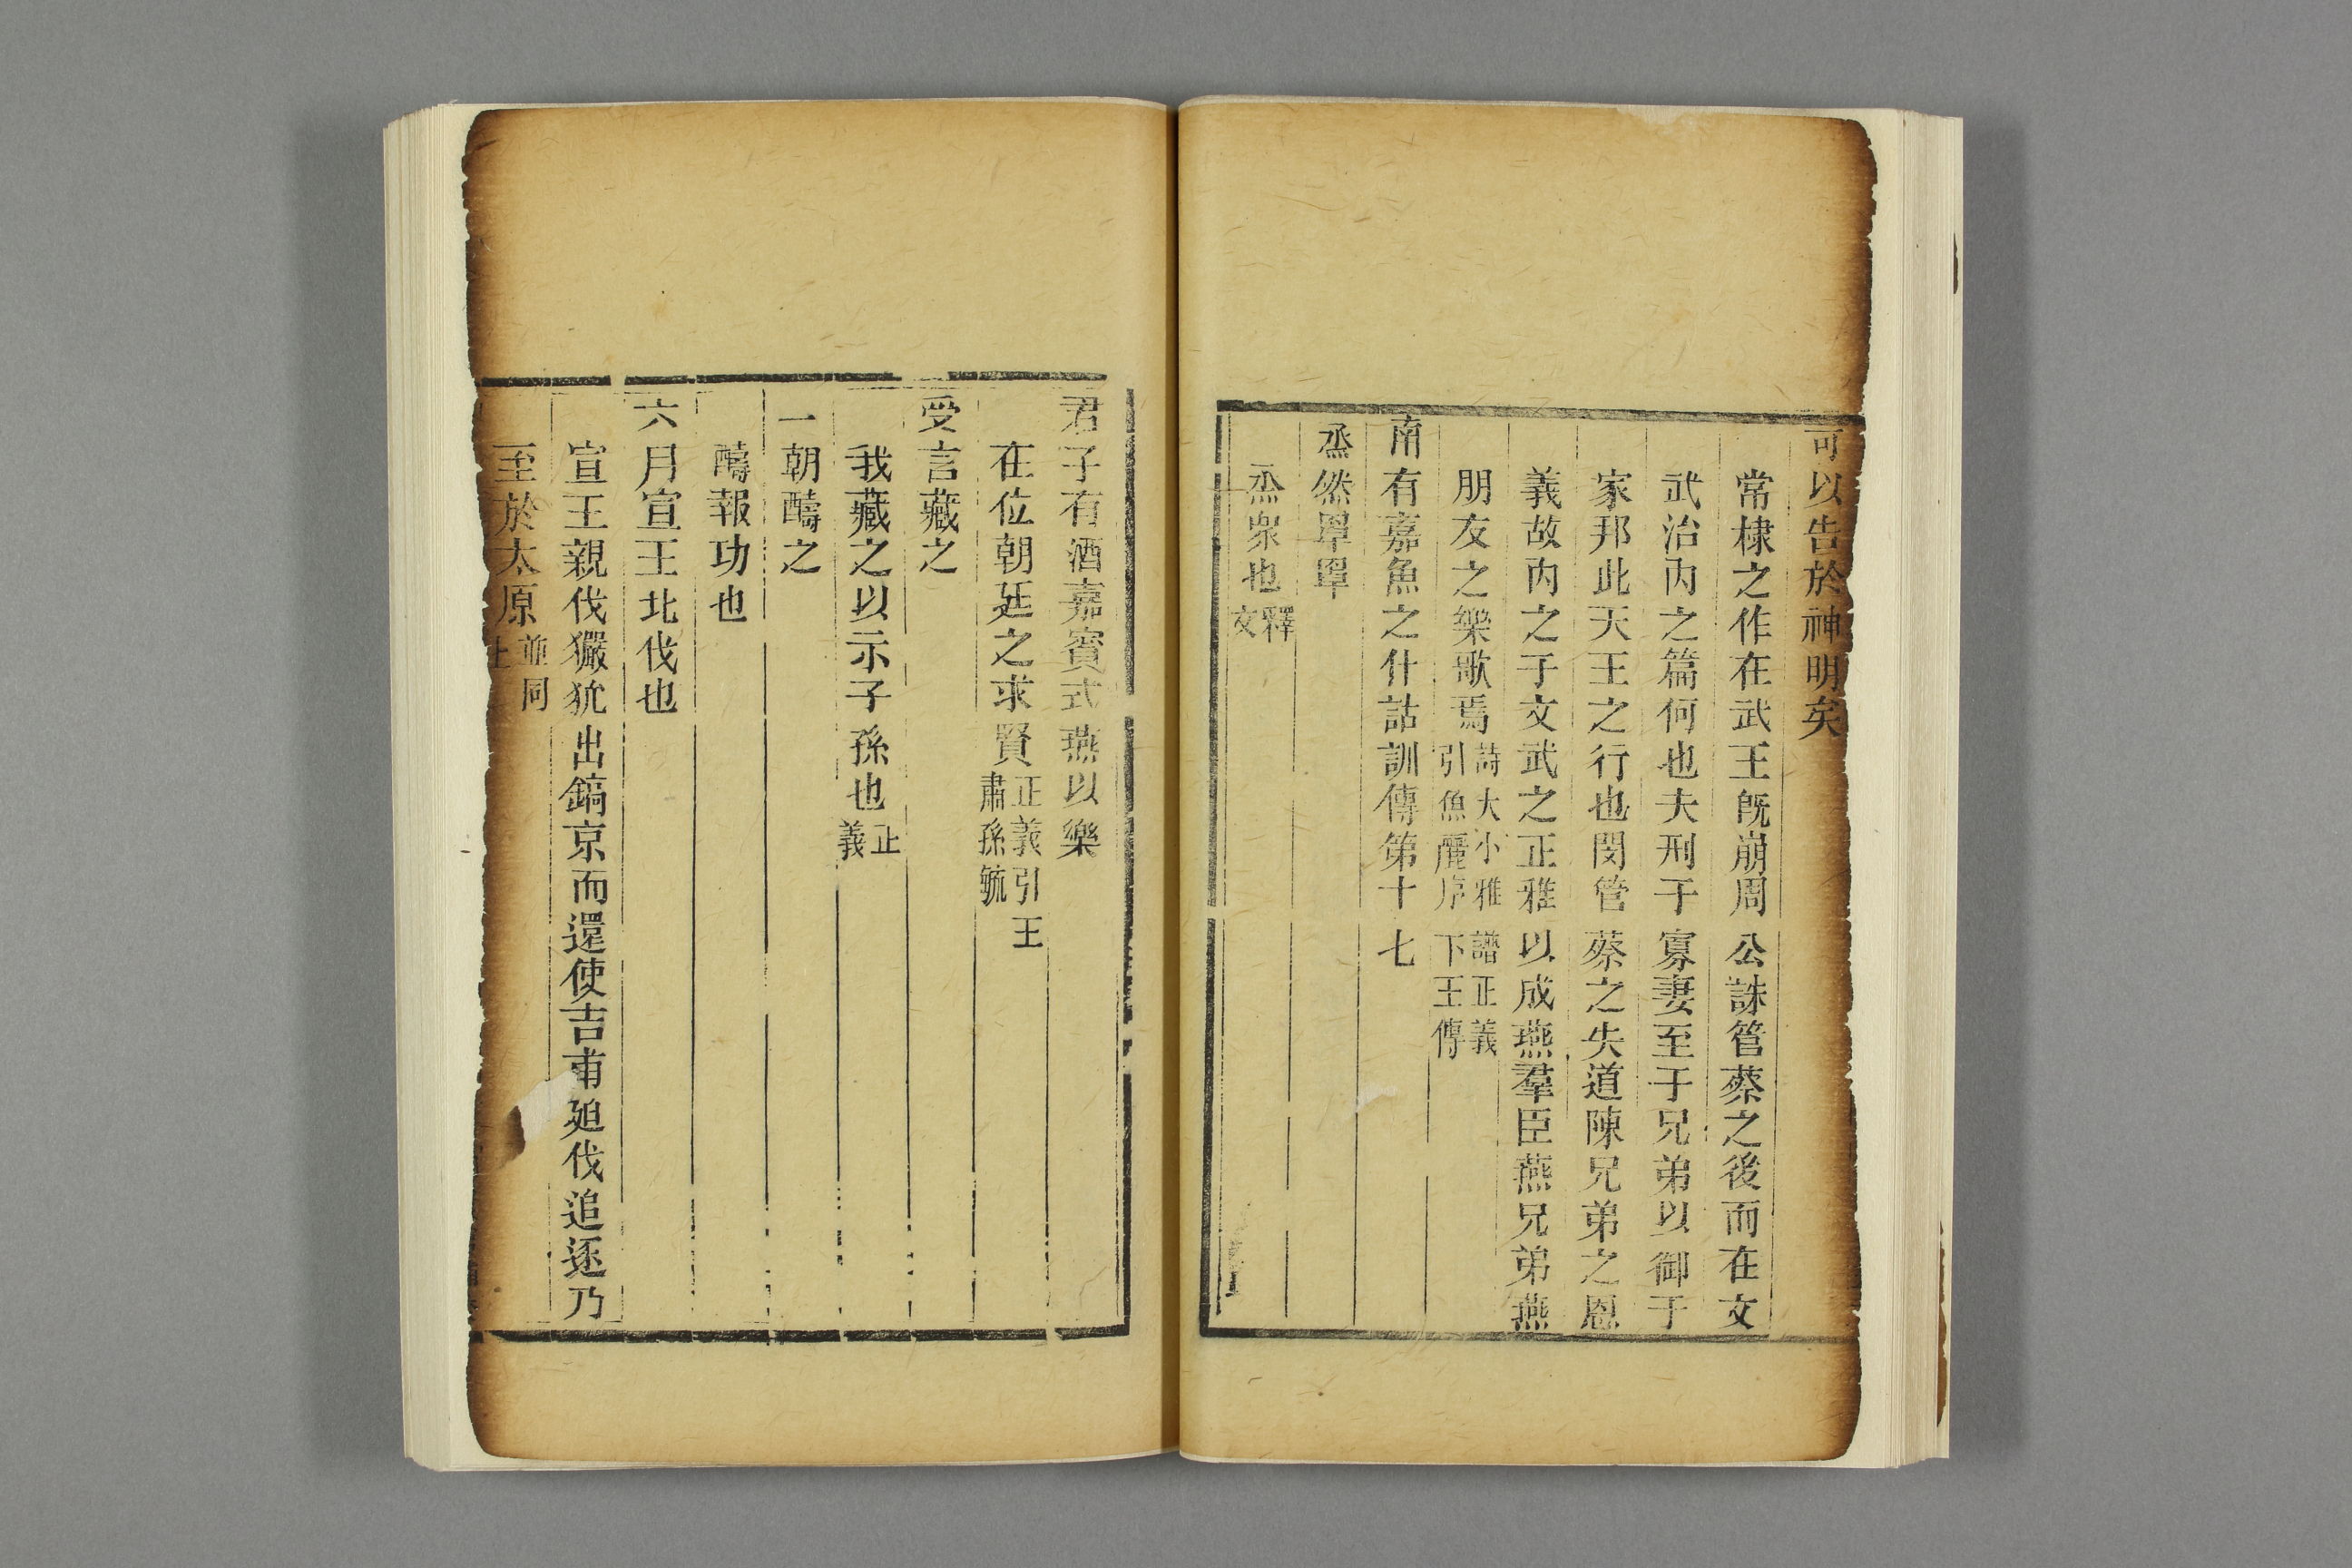 可以告於神明矣
常棣之作在武王旣崩周公誅管蔡之後而在文
武治內之篇何也夫刑于寡妻至于兄弟以御于
家邦此天王之行也閔管蔡之失道陳兄弟之恩
義故內之于文武之正雅以成燕羣臣燕兄弟燕
朋友之樂歌焉詩大小雅譜正義引魚麗序下王傳
南有嘉魚之什詁訓傳第十七
烝然罩罩
烝衆也釋文
君子有酒嘉賓式燕以樂
在位朝廷之求賢正義引王肅孫毓
受言藏之
我藏之以示子孫也正義
一朝醻之
醻報功也
六月宣王北伐也
宣王親伐玁狁出鎬京而還使吉甫廹伐追逐乃
至於太原並同上